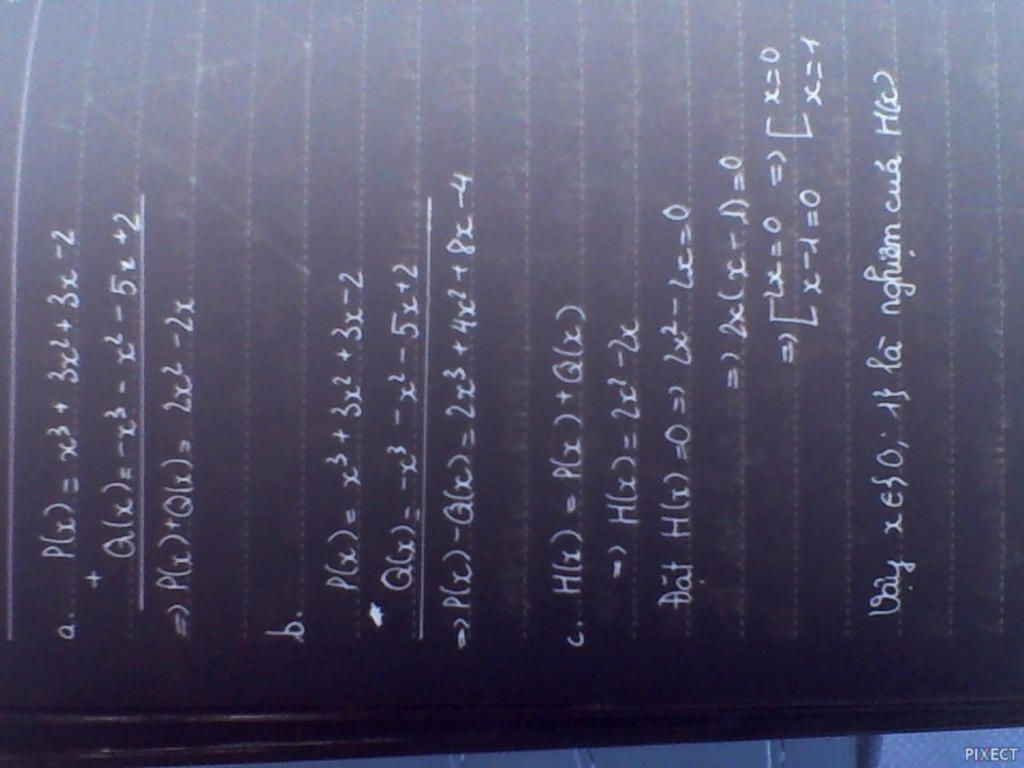 a. P(x) = x³ + 3x² + 3x - 2
+
Q(x) = -x³ - x² - 5x + 2
=> P(x) + Q(x) = 2x² - 2x
b.
P(x) = x³ + 3x² + 3x - 2
-
Q(x) = -x³ - x² - 5x + 2
=> P(x) - Q(x) = 2x³ + 4x² + 8x - 4
c. H(x) = P(x) + Q(x)
=> H(x) = 2x² - 2x
Đặt H(x) = 0 => 2x² - 2x = 0
=> 2x(x - 1) = 0
=> [ 2x = 0 => [ x = 0
x - 1 = 0 x = 1
Vậy x ∈ {0; 1} là nghiệm của H(x)
PIXECT